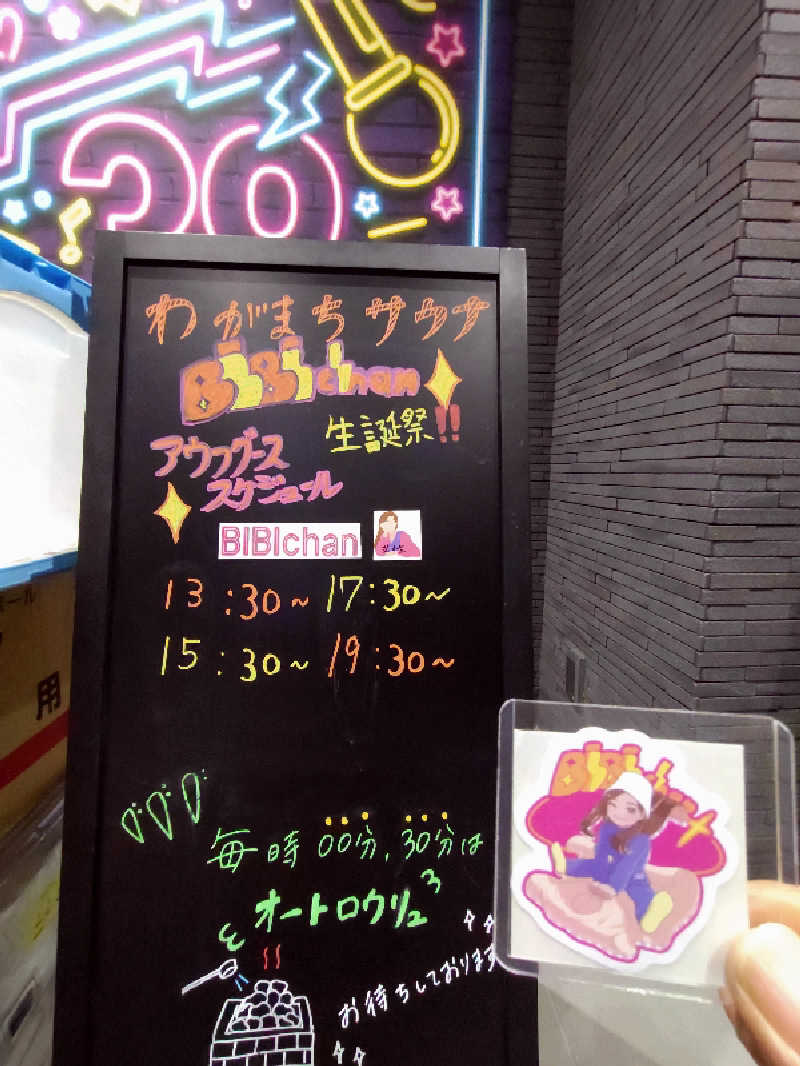 20
わがまちサウナ
BiBichan
生誕祭!!
アウフグース
スケジュール
BIBIchan
13:30~ 17:30~
15:30~ 19:30~
毎時 00分, 30分は
オートロウリュ
お待ちしております
用
BiBichan